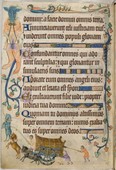 domini a facie domini omnis terra
Annunciauerunt celi iusticiam
eius et uiderunt omnes populi gloriam
eius
Confundantur omnes qui adorant
sculptilia et qui gloriantur in
simulacris suis
Adorate eum omnes angeli eius
audiuit et letata est syon
Et exultauerunt filie iude propter
iudicia tua domine
Quoniam tu dominus altissimus
super omnem terram nimis exaltatus
es super omnes deos